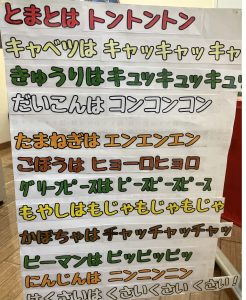 とまとは トントントン
キャベツは キャッキャッ キャ
きゅうりは キュッキュッキュッ
だいこんは コンコンコン
たまねぎは エンエンエン
ごぼうは ヒョーロヒョロ
グリーンピースは ピースピースピース
もやしはもじゃもじゃもじゃ
かぼちゃは チャッチャッチャッ
ピーマンは ピッピッピッ
にんじんは ニンニンニン
はくさいはくさいくさい くさい!